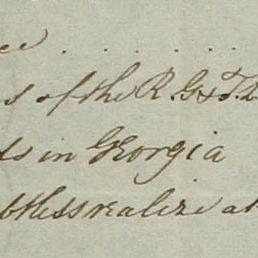 ee . . . . . .
s of the R. G & T. 
ds in Georgia
btless realize at